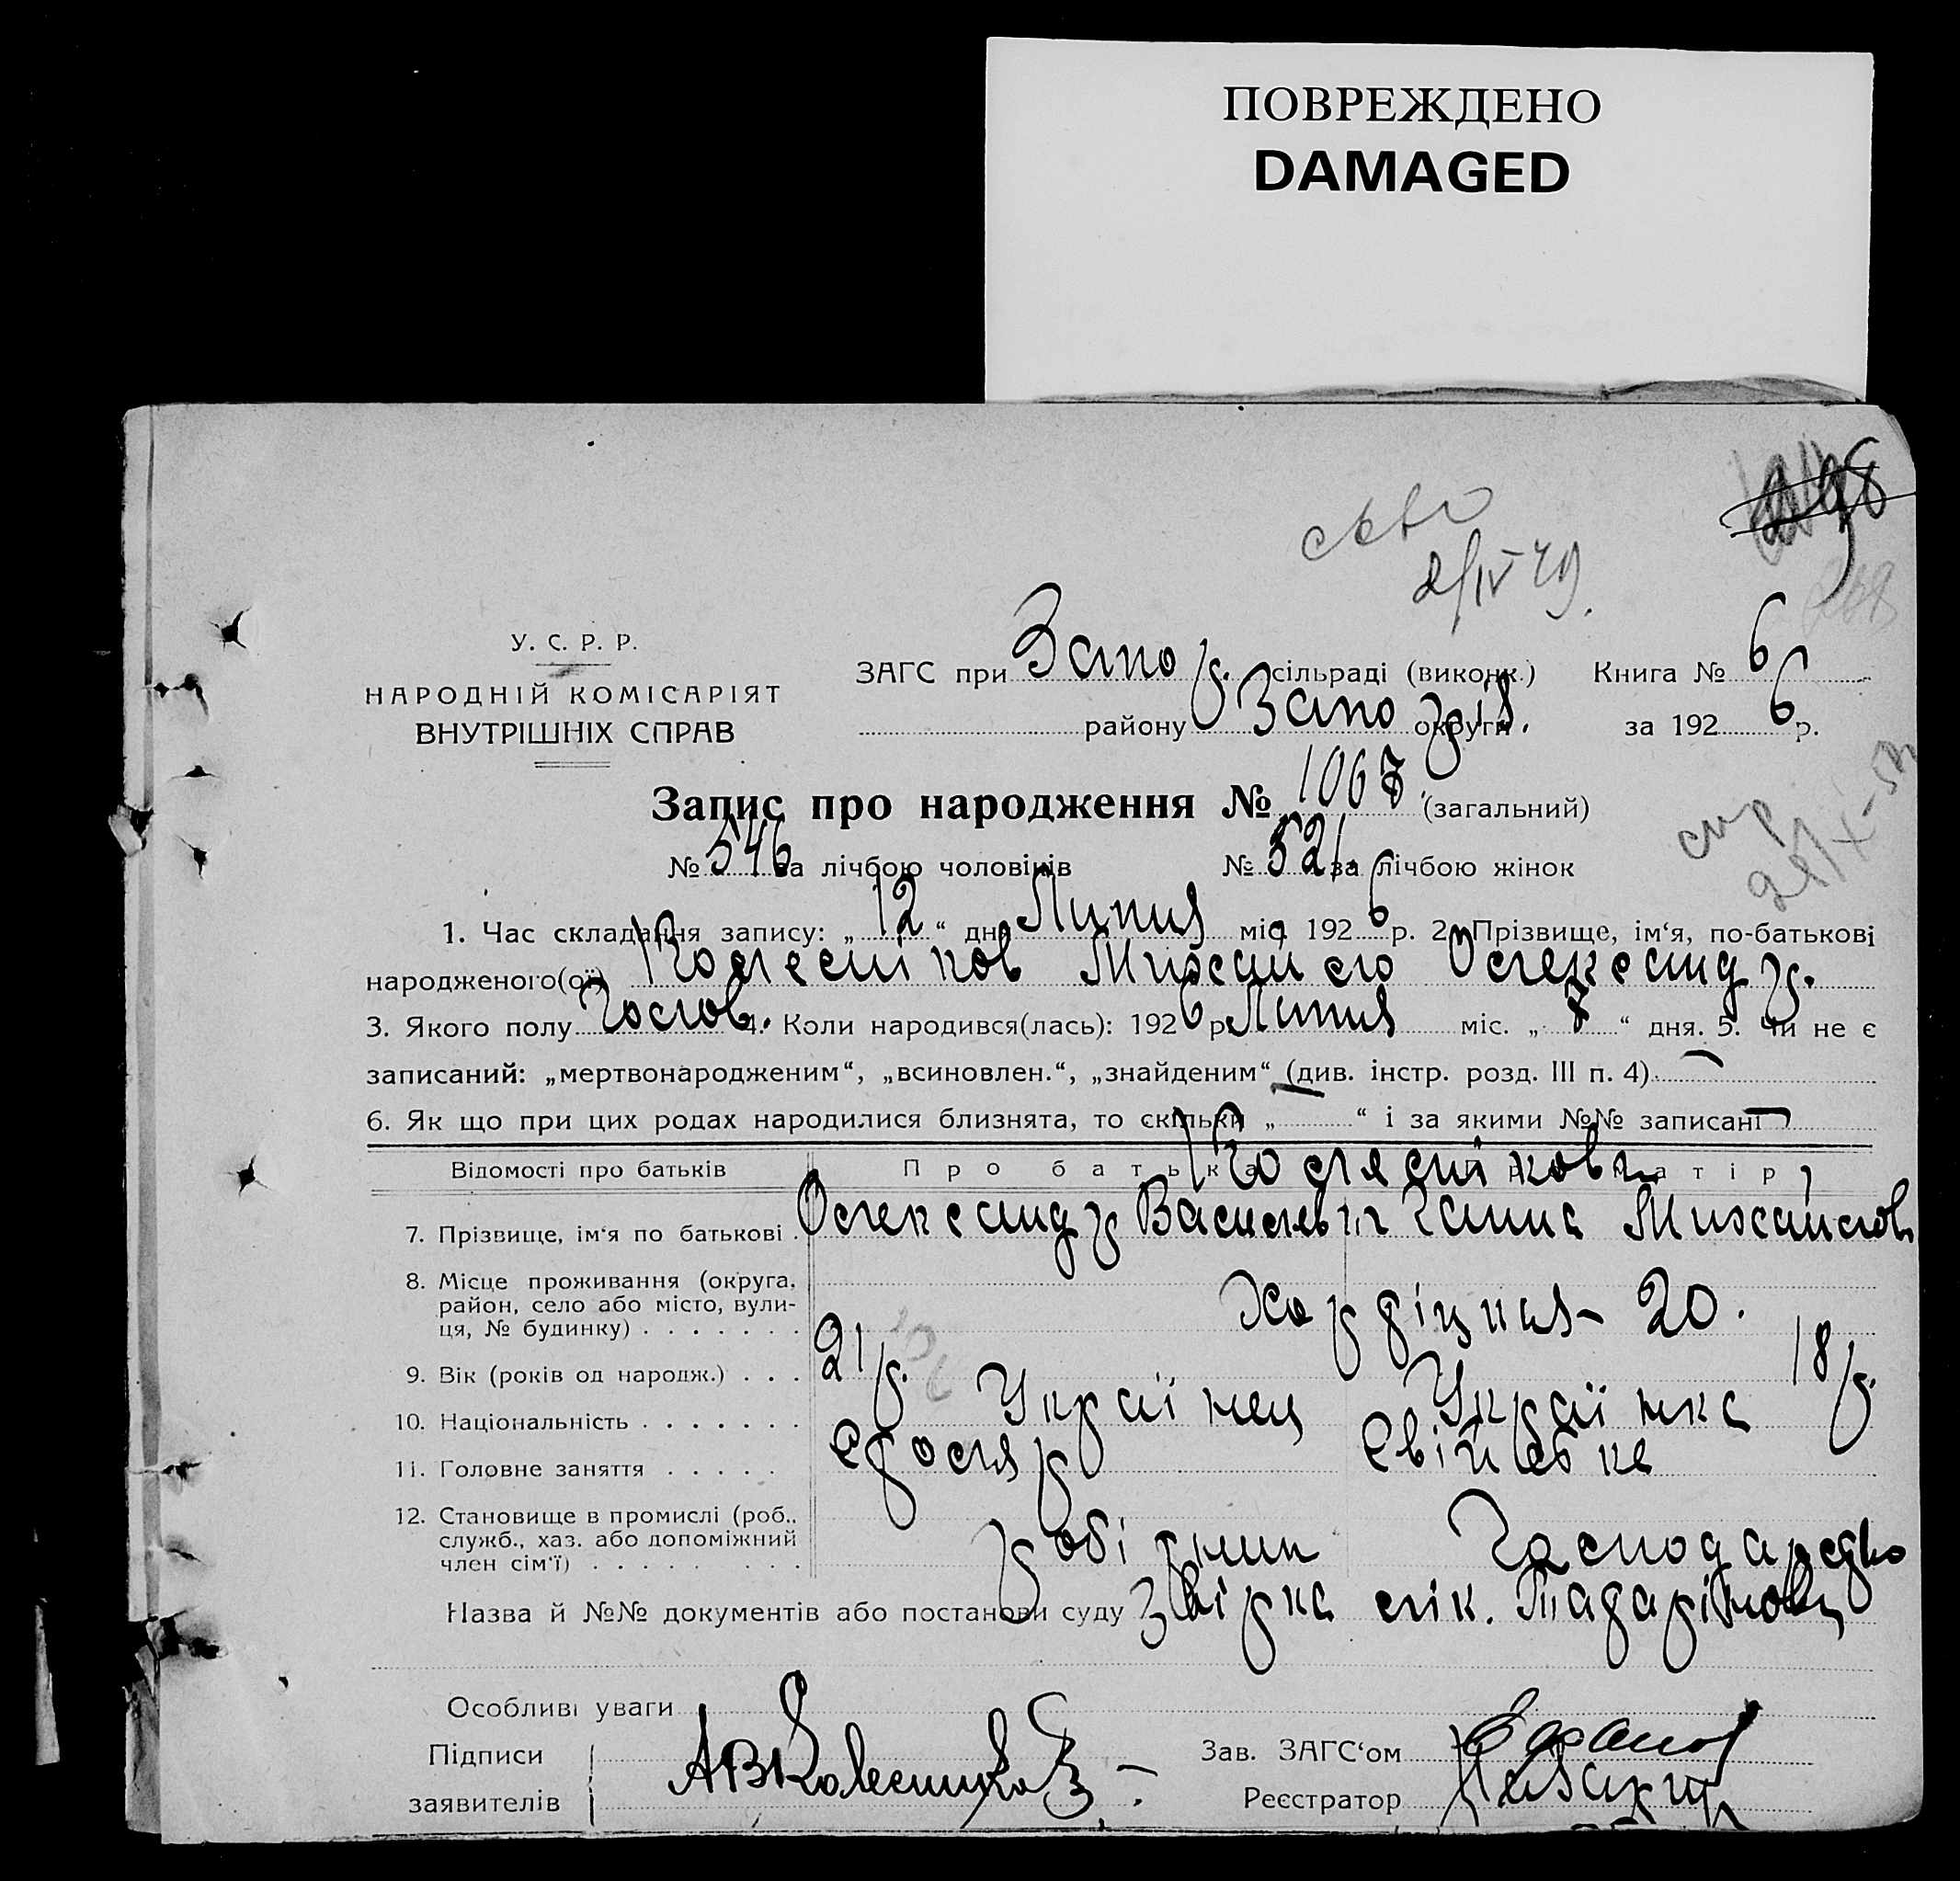 ПОВРЕЖДЕНО
DAMAGED
298
2/IV 49.
У. С. Р. Р.
НАРОДНІЙ КОМІСАРІЯТ
ВНУТРІШНІХ СПРАВ
ЗАГС при Запор. сільраді (виконк.) Книга № 6
району Запоріз. округи за 1926 р.
Запис про народження № 1067 (загальний)
№ 546 за лічбою чоловіків № 521 за лічбою жінок
1. Час складання запису: „12“ дня Липня міс. 1926 р. 2. Прізвище, ім‘я, по-батькові
народженого(ої) Колесніков Михайло Олександр.
3. Якого полу Чолов. 4. Коли народився(лась): 1926 р. Липня міс. „7“ дня. 5. Чи не є
записаний: „мертвонародженим“, „всиновлен.“, „знайденим“ (див. інстр. розд. III п. 4) —
6. Як що при цих родах народилися близнята, то скільки „—“ і за якими №№ записані —
Відомості про батьків Про батька Про матір
Колеснікови
7. Прізвище, ім‘я по батькові . Олександр Васильев Ганна Михайлов
8. Місце проживання (округа, район, село або місто, вули-ця, № будинку) . . . . . . . 20.
9. Вік (років од народж.) . . . 21 р. 18 р.
10. Національність . . . . . . . Українец Українка
11. Головне заняття . . . . . Столяр
12. Становище в промислі (роб., служб., хаз. або допоміжний член сім‘ї) . . . . . . . . . робітник
Назва й №№ документів або постанови суду лік.
Особливі уваги
Підписи заявителів АВКолесников Зав. ЗАГС‘ом
Реєстратор